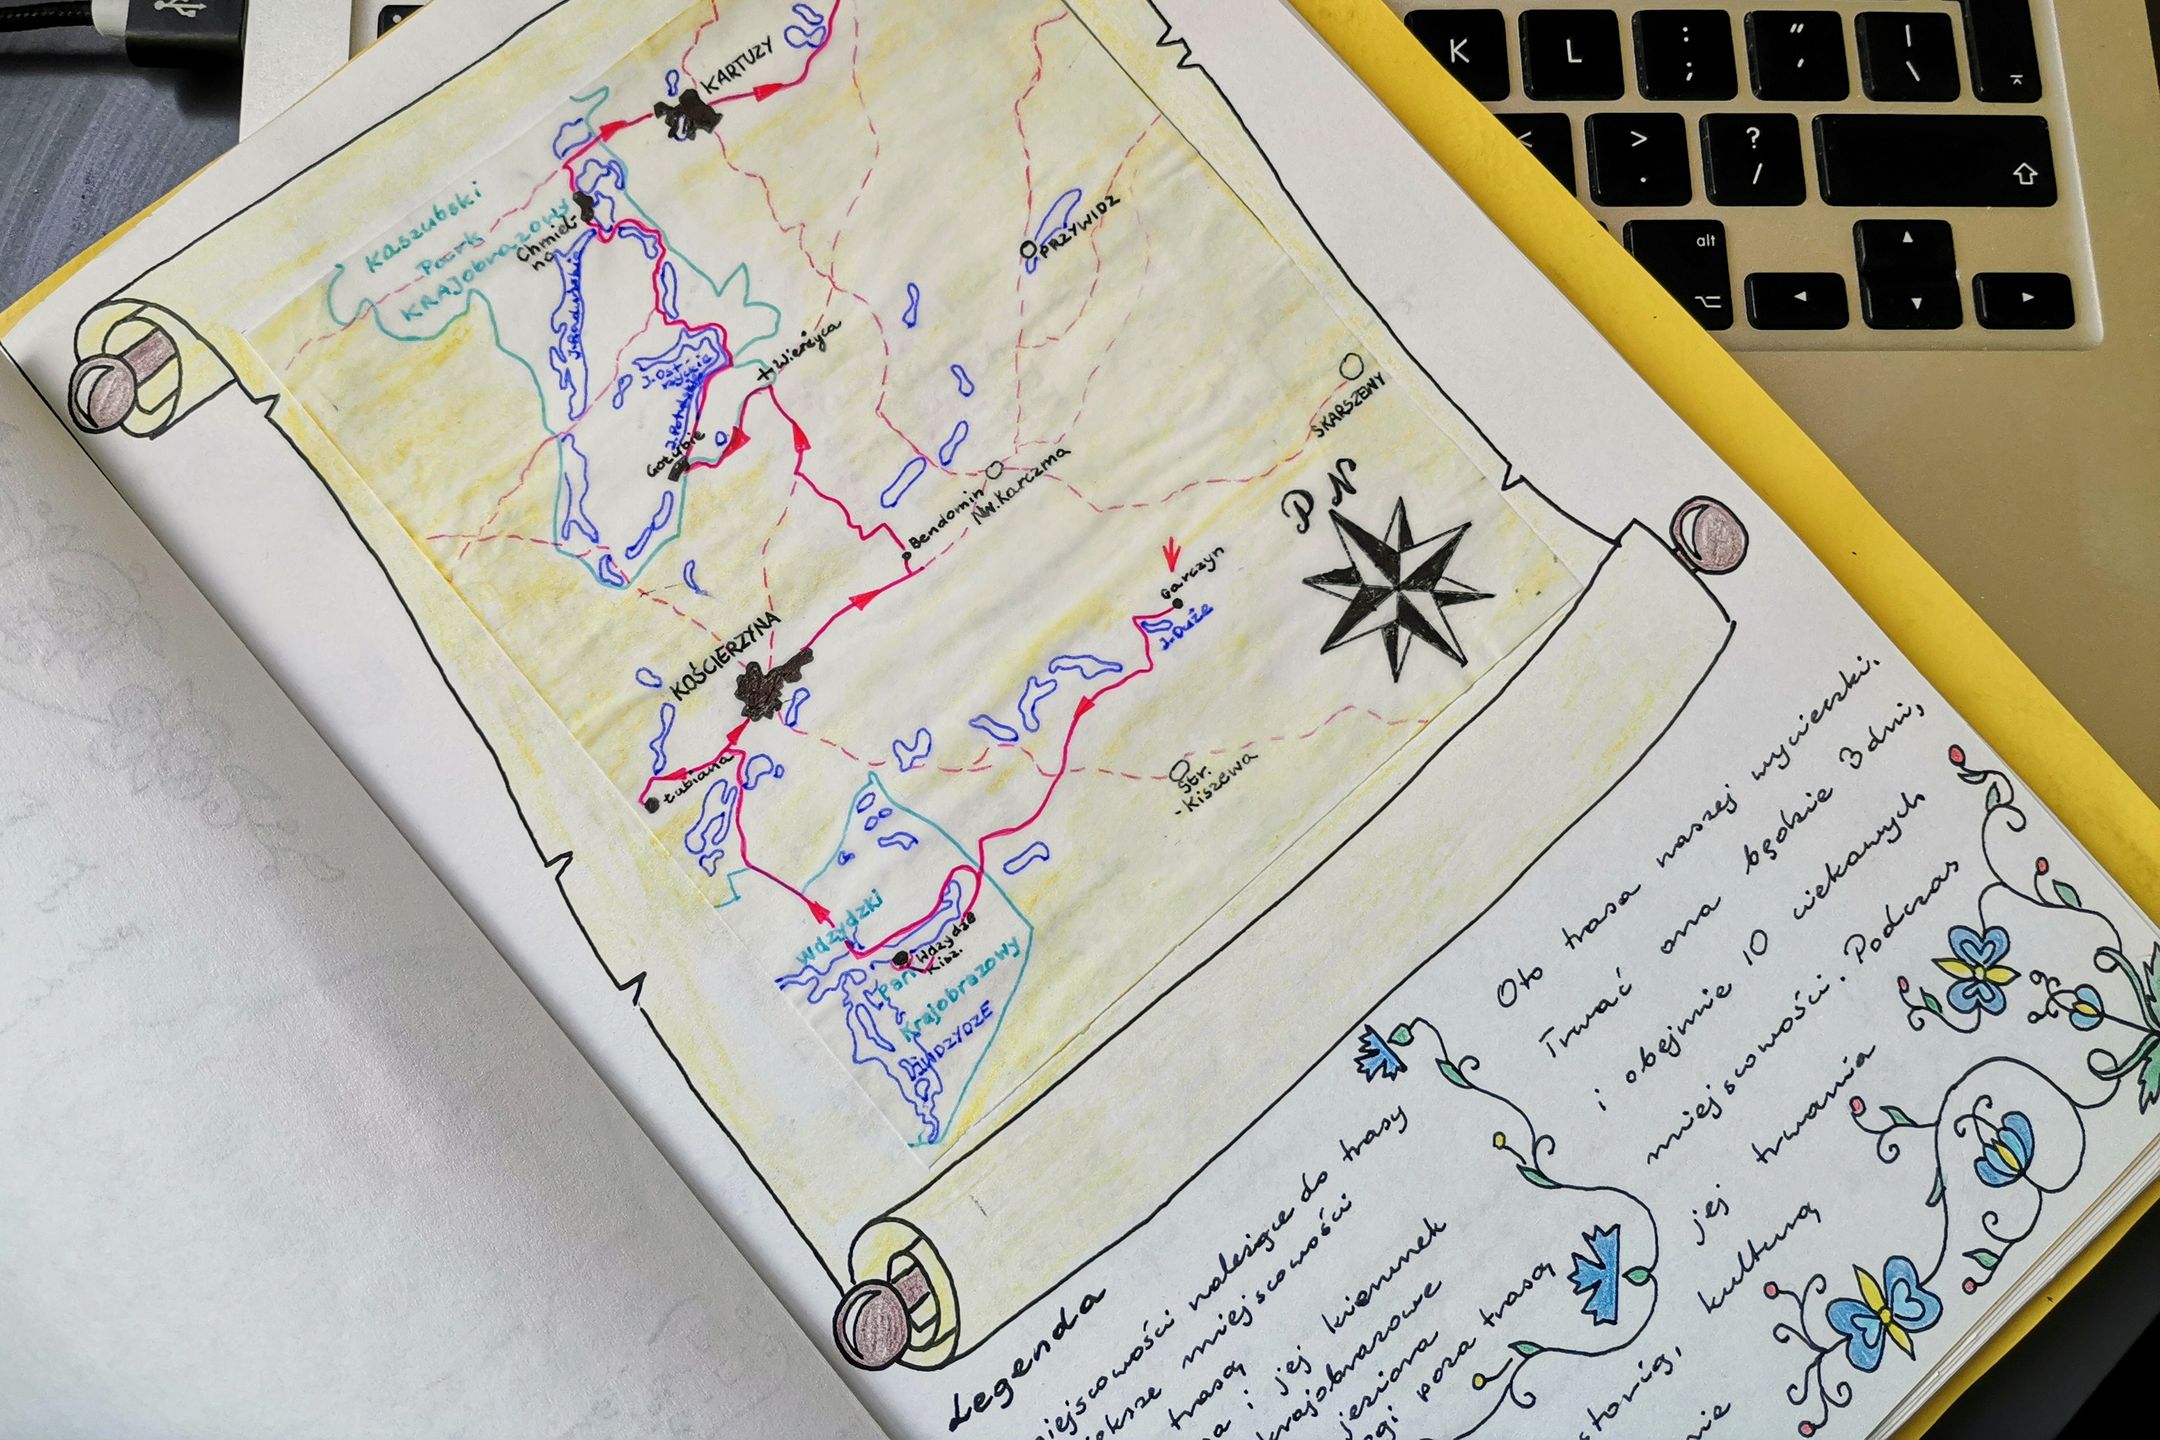 KARTUZY
Kaszubski
Park
Krajobrazowy
Chmiel-
no
J. Raduńskie
PRZYWIDZ
Wieżyca
J. Ost-
rzyckie
Gołubie
SKARSZEWY
Bendomin
Nw. Karczma
P N
Garczyn
J. Duże
KOŚCIERZYNA
Łubiana
Str.
-Kiszewa
Wdzydzki
Park
Krajobrazowy
Wdzydze
Kisz.
WDZYDZE
Oto trasa naszej wycieczki.
Trwać ona będzie 3 dni,
i obejmie 10 ciekawych
miejscowości. Podczas
jej trwania
kulturą
Legenda
miejscowości należące do trasy
miejscowości
trasą
i jej kierunek
krajobrazowe
jeziora
poza trasą
K
L
:
;
"
'
|
\
<
>
.
?
/
alt